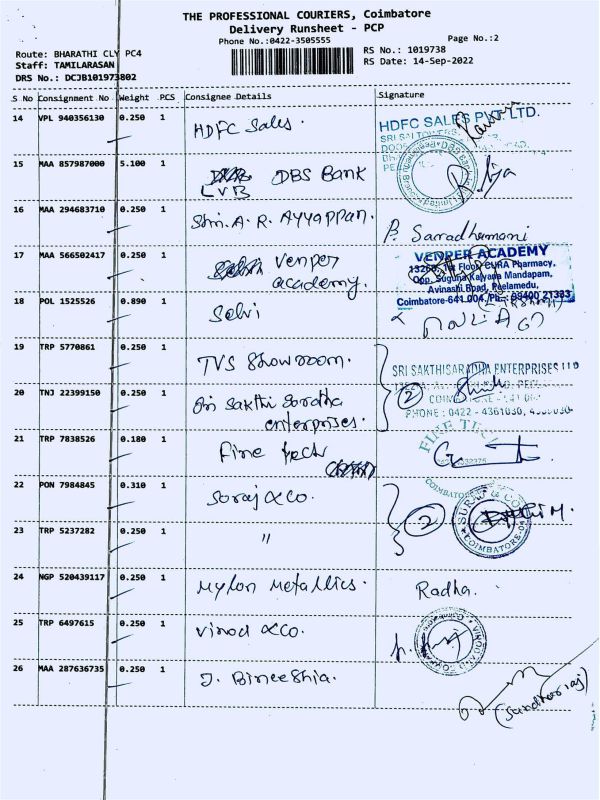 THE PROFESSIONAL COURIERS, Coimbatore
Delivery Runsheet - PCP
Phone No.:0422-3505555
Page No.:2
Route: BHARATHI CLY PC4
RS No.: 1019738
Staff: TAMILARASAN
RS Date: 14-Sep-2022
DRS No.: DCJB101973802
S No Consignment No Weight PCS Consignee Details Signature
14 VPL 940356130 0.250 1 HDFC Sales.
HDFC SALES PVT. LTD.
15 MAA 857987000 5.100 1 DBS Bank
LVB
16 MAA 294683710 0.250 1 Shri. A. R. Ayyappan.
17 MAA 566502417 0.250 1 Venper
academy.
VENPER ACADEMY
1st Floor, CURA Pharmacy,
Opp. Suguna Kalyana Mandapam,
Avinashi Road, Peelamedu,
Coimbatore-641 004. Ph.: 99400 21333
18 POL 1525526 0.890 1 Selvi
19 TRP 5770861 0.250 1 TVS Showroom.
SRI SAKTHISARADHA ENTERPRISES
2
PHONE : 0422 - 4361030,
20 TNJ 22399150 0.250 1 Sri Sakthi Saradha
enterprises.
21 TRP 7838526 0.180 1 Fine tech
FINE TECH
22 PON 7984845 0.310 1 Suraj & co.
2
SURAJ & CO
COIMBATORE
23 TRP 5237282 0.250 1 "
24 NGP 520439117 0.250 1 Mylon Metallics.
Radha.
25 TRP 6497615 0.250 1 Vinod & co.
26 MAA 287636735 0.250 1 J. Bineeshia.